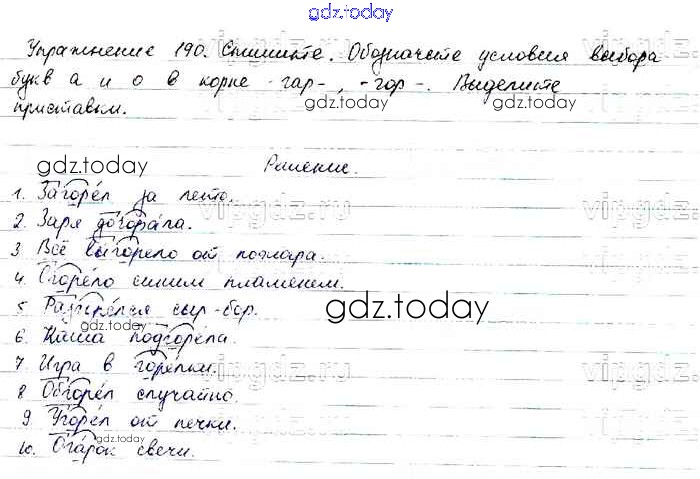 gdz.today
Упражнение 190. Спишите. Обозначьте условия выбора
букв а и о в корне -гар-, -гор-. Выделите
gdz.today gdz.today
приставки.
gdz.today
Решение.
1. Загорел за лето. vipgdz.ru vipgdz.ru
2. Заря догорала.
3 Всё выгорело от пожара.
4. Сгорело синим пламенем.
5. Разгорелся сыр-бор. gdz.today
gdz.today
6. Каша подгорела.
7. Игра в горелки. vipgdz.ru vipgdz.ru
8 Обгорел случайно.
9. Угорел от печки.
gdz.today gdz.today
10. Огарок свечи.